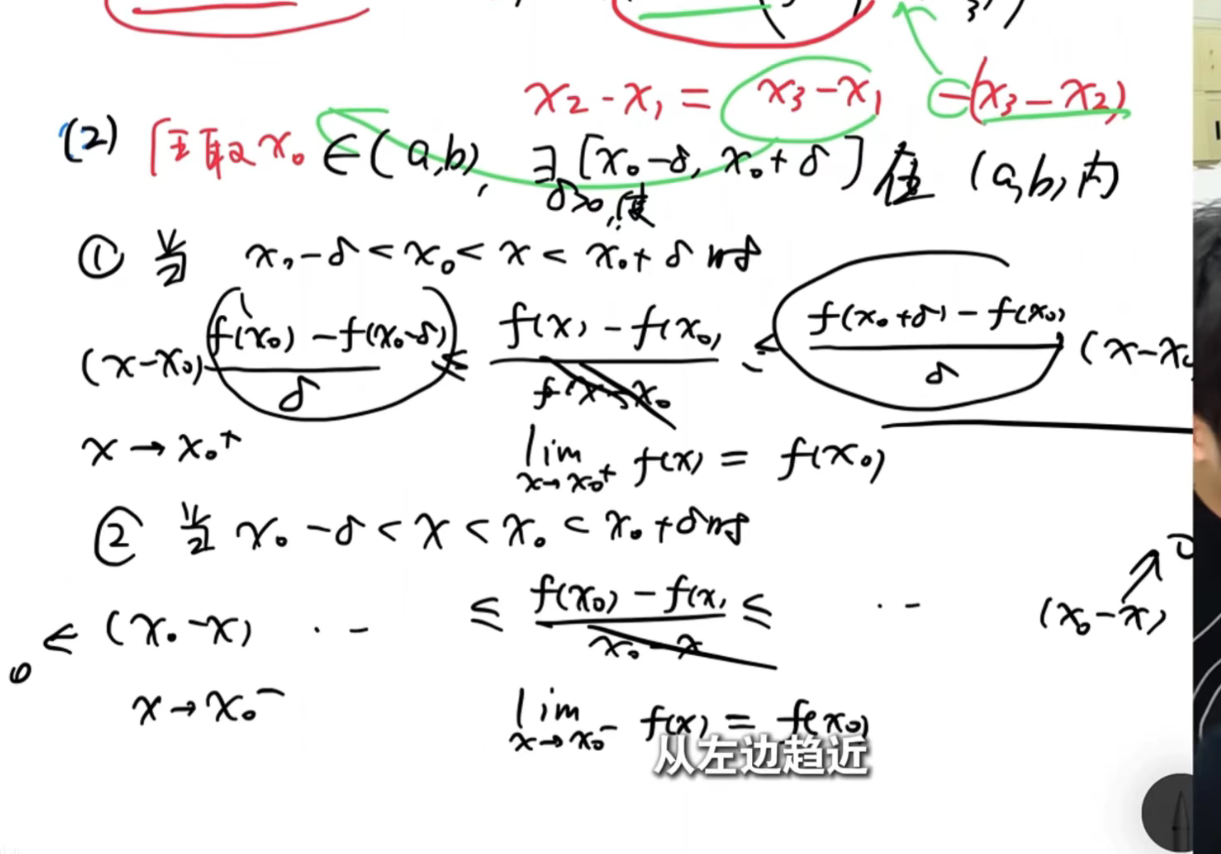 x₂ - x₁ = x₃ - x₁ - (x₃ - x₂)
(2) 任取 x₀ ∈ (a,b), ∃ [x₀-δ, x₀+δ] 在 (a,b) 内
δ>0, 使
① 当 x₀-δ < x₀ < x < x₀+δ 时
(x-x₀) (f(x₀) - f(x₀-δ))/δ ≤ f(x) - f(x₀) ≤ (f(x₀+δ) - f(x₀))/δ (x-x₀
x → x₀⁺ lim x→x₀⁺ f(x) = f(x₀)
② 当 x₀-δ < x < x₀ < x₀+δ 时
0 ← (x₀-x) ·· ≤ (f(x₀) - f(x))/(x₀-x) ≤ ·· (x₀-x) ↗ 0
x → x₀⁻ lim x→x₀⁻ f(x) = f(x₀)
从左边趋近